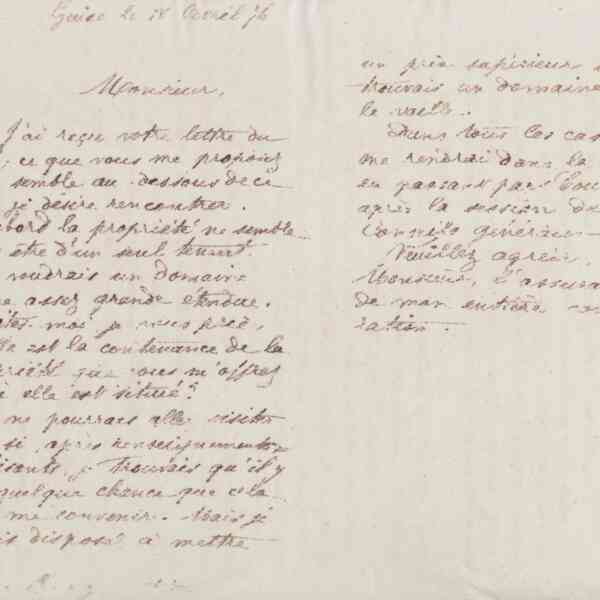 Guise le 18 Avril 76
Monsieur,
J'ai reçu votre lettre du
; ce que vous me proposez
semble au-dessous de ce
je désire rencontrer.
abord la propriété ne semble
être d'un seul tenant.
voudrais un domaine
assez grande étendue.
moi, je vous prie,
est la contenance de la
que vous m'offrez
elle est située?
ne pourrais aller visiter
si, après renseignements
je trouvais qu'il y
quelque chance que cela
me convenir. Mais je
disposé à mettre
un prix supérieur
trouvais un domaine
le vaille.
Dans tous les cas
me rendrai dans la
en passant par
après la session de
Conseils généraux
Veuillez agréer,
Monsieur, l'assura
de mon entière
ration.